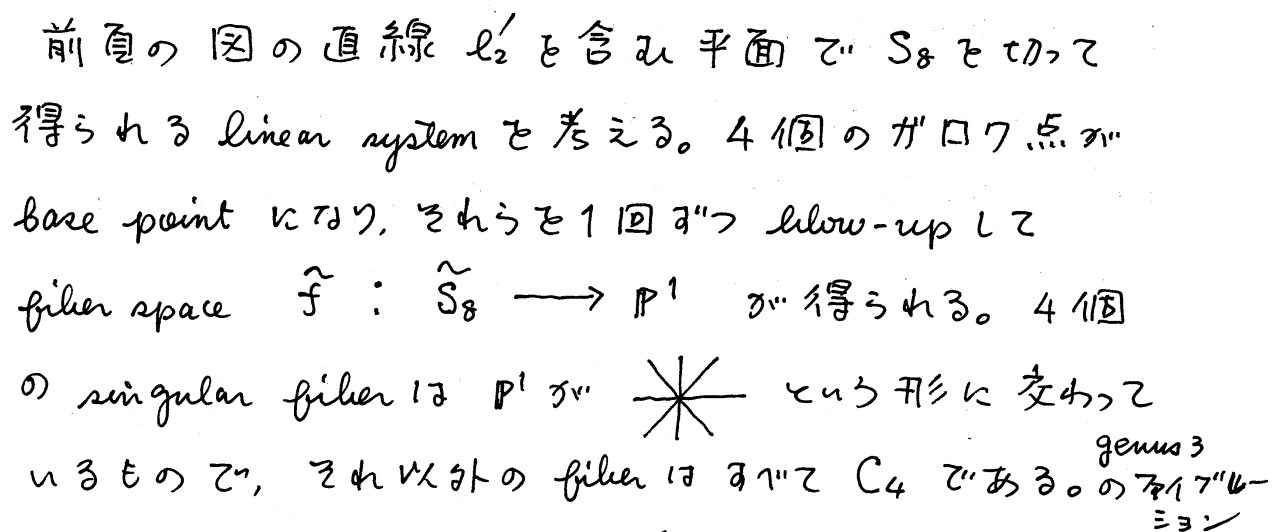 前頁の図の直線 ℓ₂′ を含む平面で S₈ を切って
得られる linear system を考える。4個のガロワ点が
base point になり、それらを1回ずつ blow-up して
fiber space f̃ : S̃₈ ⟶ ℙ¹ が得られる。4個
の singular fiber は ℙ¹ が という形に交わって
いるもので、それ以外の fiber はすべて C₄ である。
genus 3
のファイブレー
ション